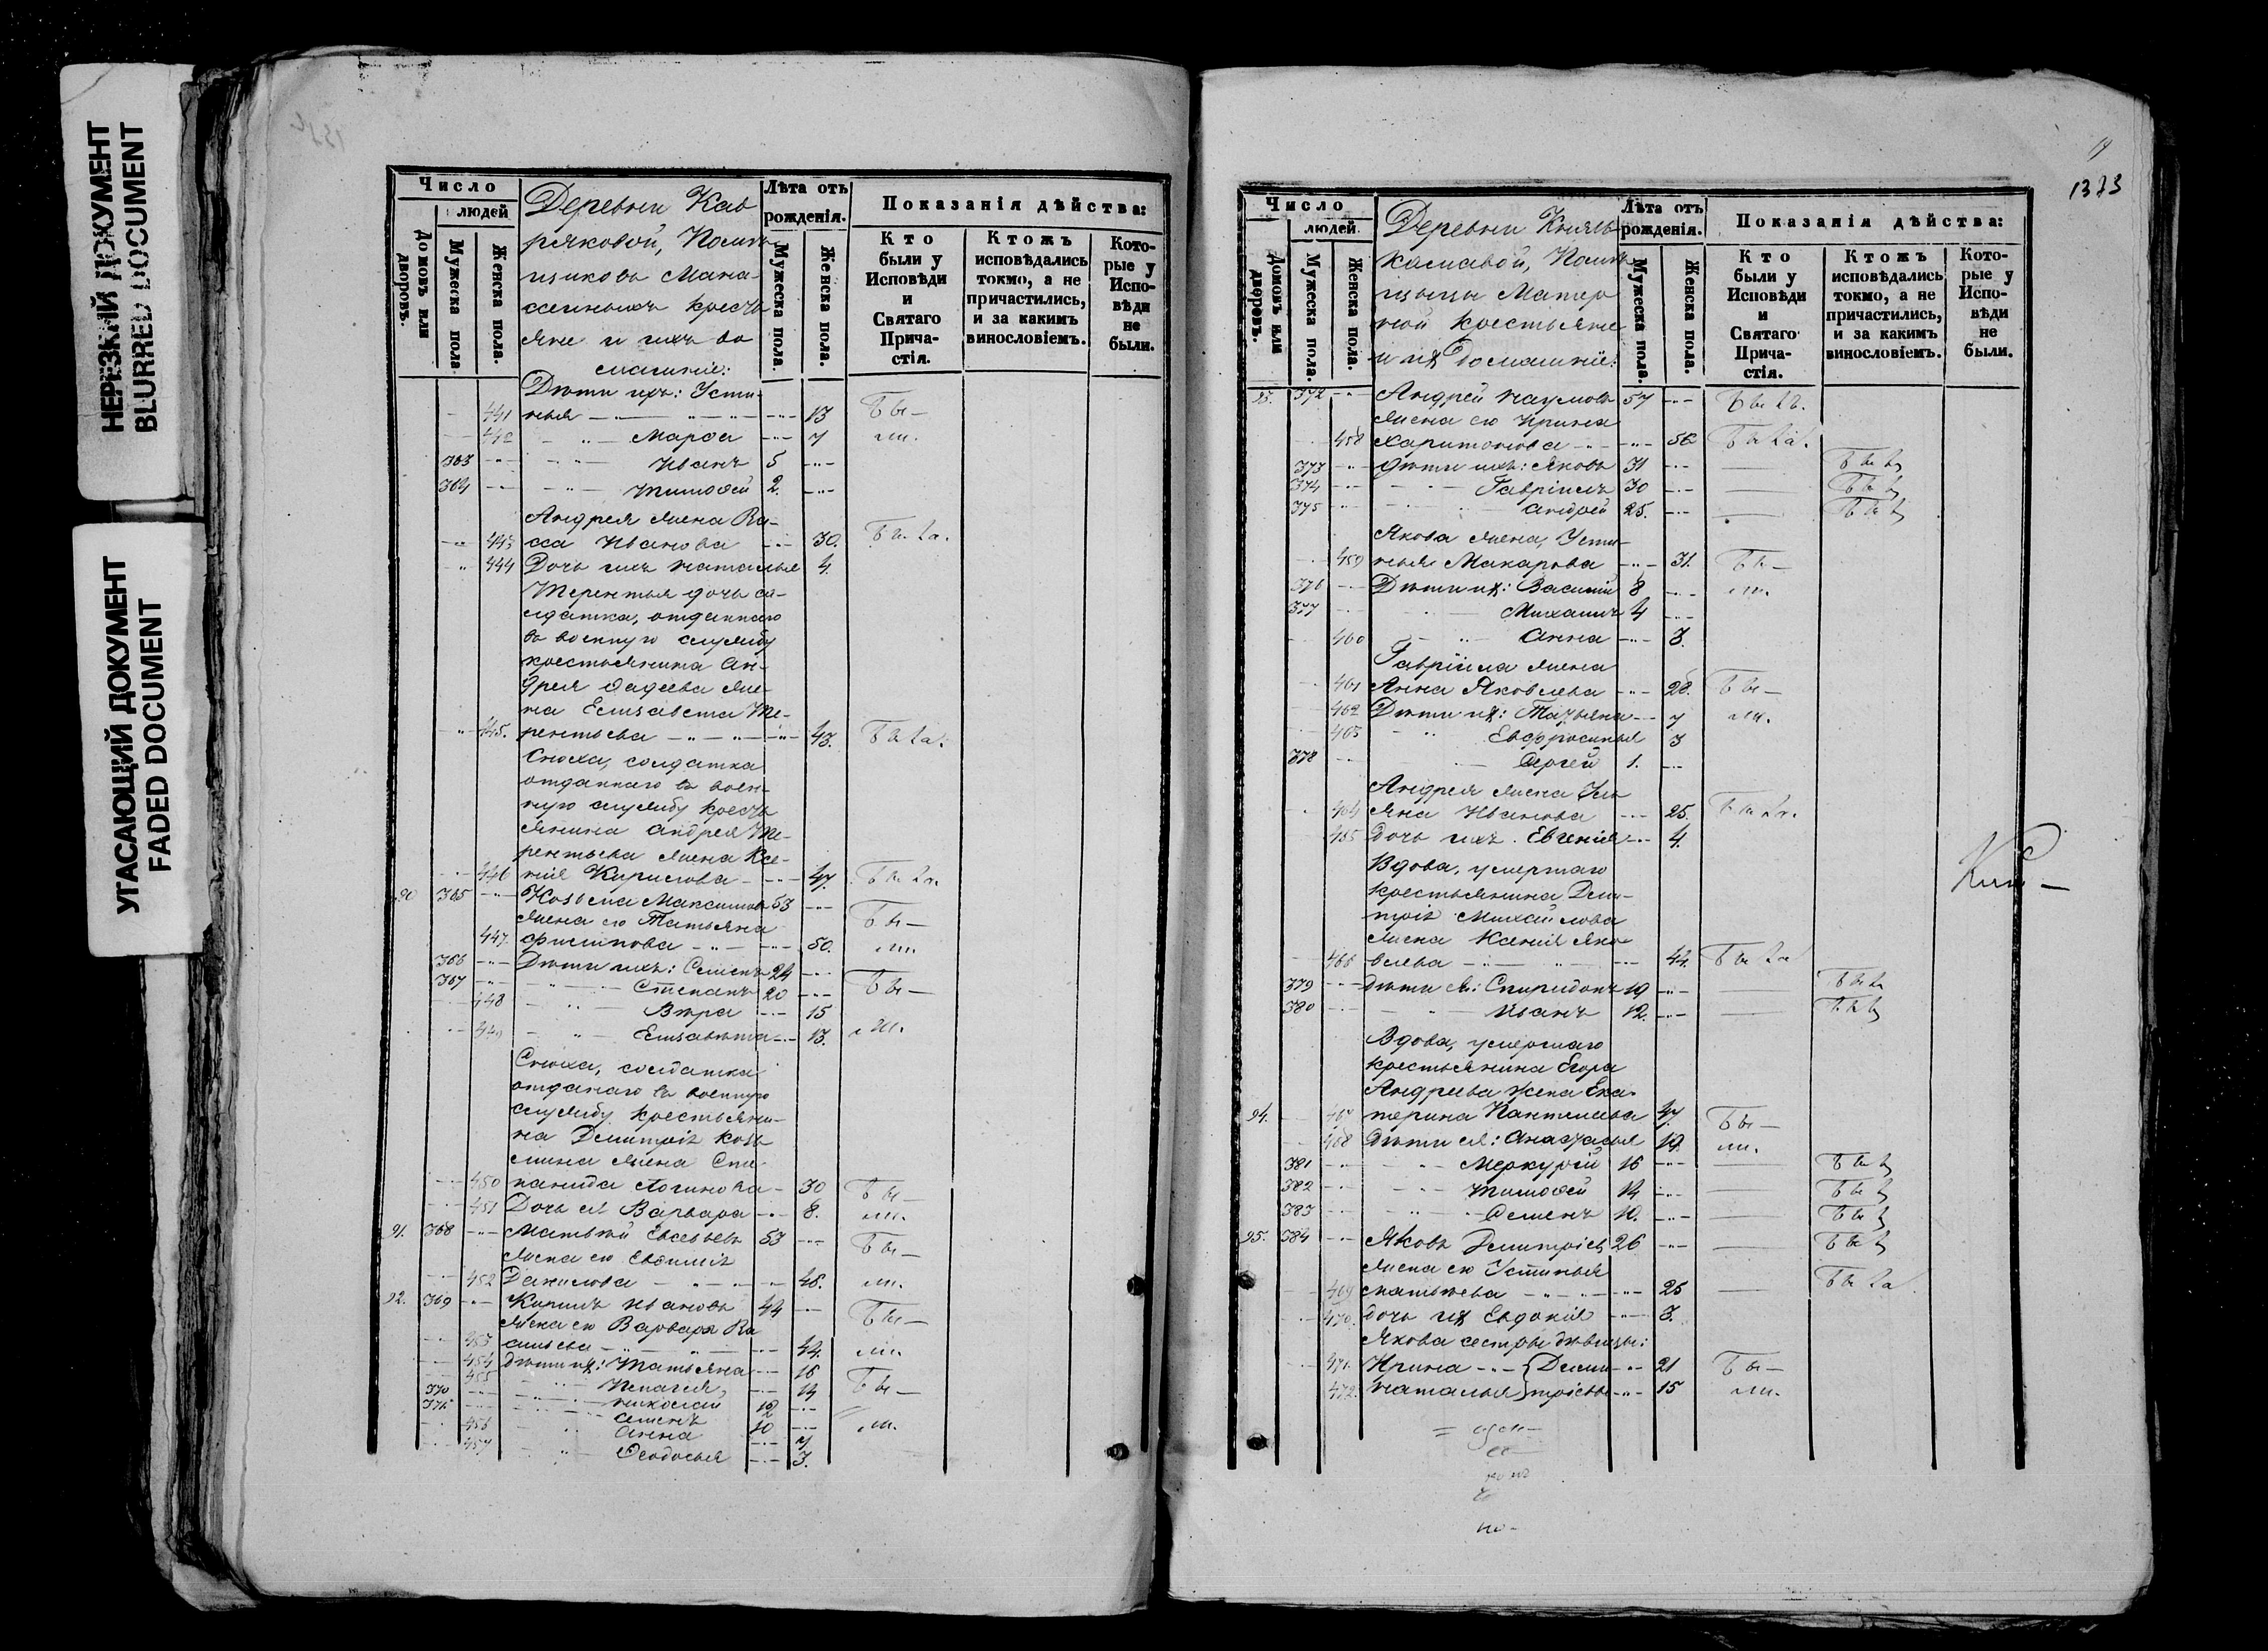 НЕРЕЗКИЙ ДОКУМЕНТ
BLURRED DOCUMENT
УГАСАЮЩИЙ ДОКУМЕНТ
FADED DOCUMENT
Число
людей
Домовъ или дворовъ.
Мужеска пола.
Женска пола.
Деревни Кав
ряковой, Помѣ
щиковъ Мана
сеиныхъ кресть
яне и ихъ до
машніе:
Лѣта отъ
рожденія.
Мужеска пола.
Женска пола.
Показанія дѣйства:
Кто
были у
Исповѣди
и
Святаго
Прича-
стія.
Ктожъ
исповѣдались
токмо, а не
причастились,
и за какимъ
винословіемъ.
Кото-
рые у
Испо-
вѣди
не
были.
Дѣти ихъ: Усти-
441 нья 13 Бы-
442 Марѳа 7 ли.
363 Иванъ 5
364 Тимоѳей 2.
Андрея жена Ва-
443 сса Иванова 30. Была.
444 Дочь ихъ Наталья 4.
Терентья дочь со-
лдатка, отданнаго
въ военную службу
крестьянина Ан-
дрея Фадѣева же-
на Елизавета Те-
445. рентьева 43. Была.
Сноха, солдатка
отданнаго въ воен-
ную службу кресть
янина Андрея Те-
рентьева жена Ксе-
446 нія Кирилова 47. Была
90 365 Козьма Максимовъ 53
жена его Татьяна Бы-
447. Филипова 50. ли.
366 Дѣти ихъ: Семенъ 24
367 Степанъ 20 Бы-
448 Вѣра 15
449 Елизавета 13. ли.
Сноха, солдатка
отданаго въ военную
службу крестьяни-
на Димитрія Козь
мина жена Сте-
450 панида Логинова 30 Бы-
451 Дочь ея Варвара 8. ли.
91. 368 Матвѣй Евсевьевъ 53
жена его Евѳимія Бы-
452 Данилова 48. ли.
92. 369 Кирилъ Ивановъ 44
жена его Варвара Ва Бы-
453 сильева 44. ли.
454 дѣти ихъ: Татьяна 16
455 Пелагия, 14 Бы-
370 Николай 12
371 Семенъ 10
456 Анна 7 ли.
457 Ѳеодосья 3.
1373
Число
людей.
Домовъ или дворовъ.
Мужеска пола.
Женска пола.
Деревни Князь
каславой, Помѣ
щицы Матер
ной крестьяне
и ихъ домашніе:
Лѣта отъ
рожденія.
Мужеска пола.
Женска пола.
Показанія дѣйства:
Кто
были у
Исповѣди
и
Святаго
Прича-
стія.
Ктожъ
исповѣдались
токмо, а не
причастились,
и за какимъ
винословіемъ.
Кото-
рые у
Испо-
вѣди
не
были.
93. 372 Андрей Наумовъ 57 Былъ.
жена его Ирина
458 Харитонова 56 Была.
373 дѣти ихъ: Яковъ 31 Былъ
374 Гавріилъ 30 Былъ
375 Андрей 25. Былъ
Якова жена, Усти-
459 нья Макарова 31. Бы-
376 Дѣти ихъ: Василій 8 ли.
377 Михаилъ 4
460 Анна 3.
Гавріила жена
461 Анна Яковлева 28. Бы-
462 Дѣти ихъ: Татьяна 7 ли.
463 Евфросинья 3
378 Сергей 1.
Андрея жена Уль
464 яна Иванова 25. Была.
465 дочь ихъ Евгенія 4.
Вдова, умершаго
крестьянина Дми-
трія Михайлова
жена Ксенія Яко
466 влева 44. Была
379 дѣти ея: Спиридонъ 19 Былъ
380 Иванъ 12. Былъ
Вдова, умершаго
крестьянина Егора
Андреева жена Ека-
94. 467 терина Пантелеева 47. Бы-
468 дѣти ея: Анастасья 19. ли.
381 Меркурій 16 Былъ
382 Тимоѳей 14 Былъ
383 Семенъ 10. Былъ
95. 384 Яковъ Димитріев 26 Былъ
жена его Устинья
469 Матвѣева 25 Была
470. дочь ихъ Евдокія 3.
Якова сестры дѣвицы:
471. Ирина Дими- 21 Бы-
472. Наталья тріевы 15 ли.